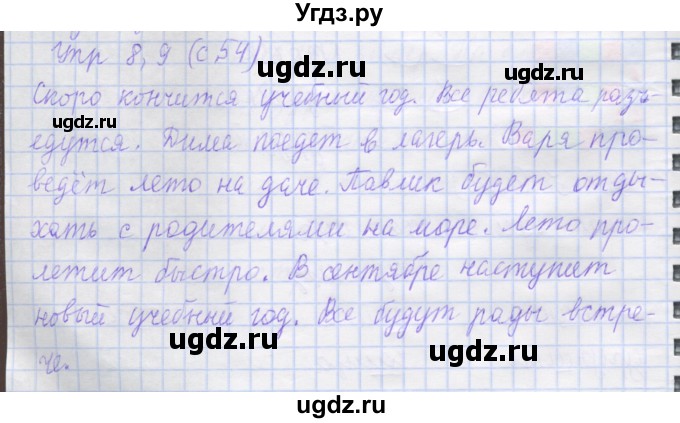 Угдз.ру
Упр 8, 9 (с 54)
ugdz.ru ugdz.ru
Скоро кончится учебный год. Все ребята разъ-
ugdz.ru
едутся. Дима поедет в лагерь. Варя про-
ugdz.ru ugdz.ru
ведёт лето на даче. Павлик будет отды-
хать с родителями на море. Лето про-
ugdz.ru ugdz.ru
летит быстро. В сентябре наступит
новый учебный год. Все будут рады встре-
ugdz.ru ugdz.ru
че.
ugdz.ru